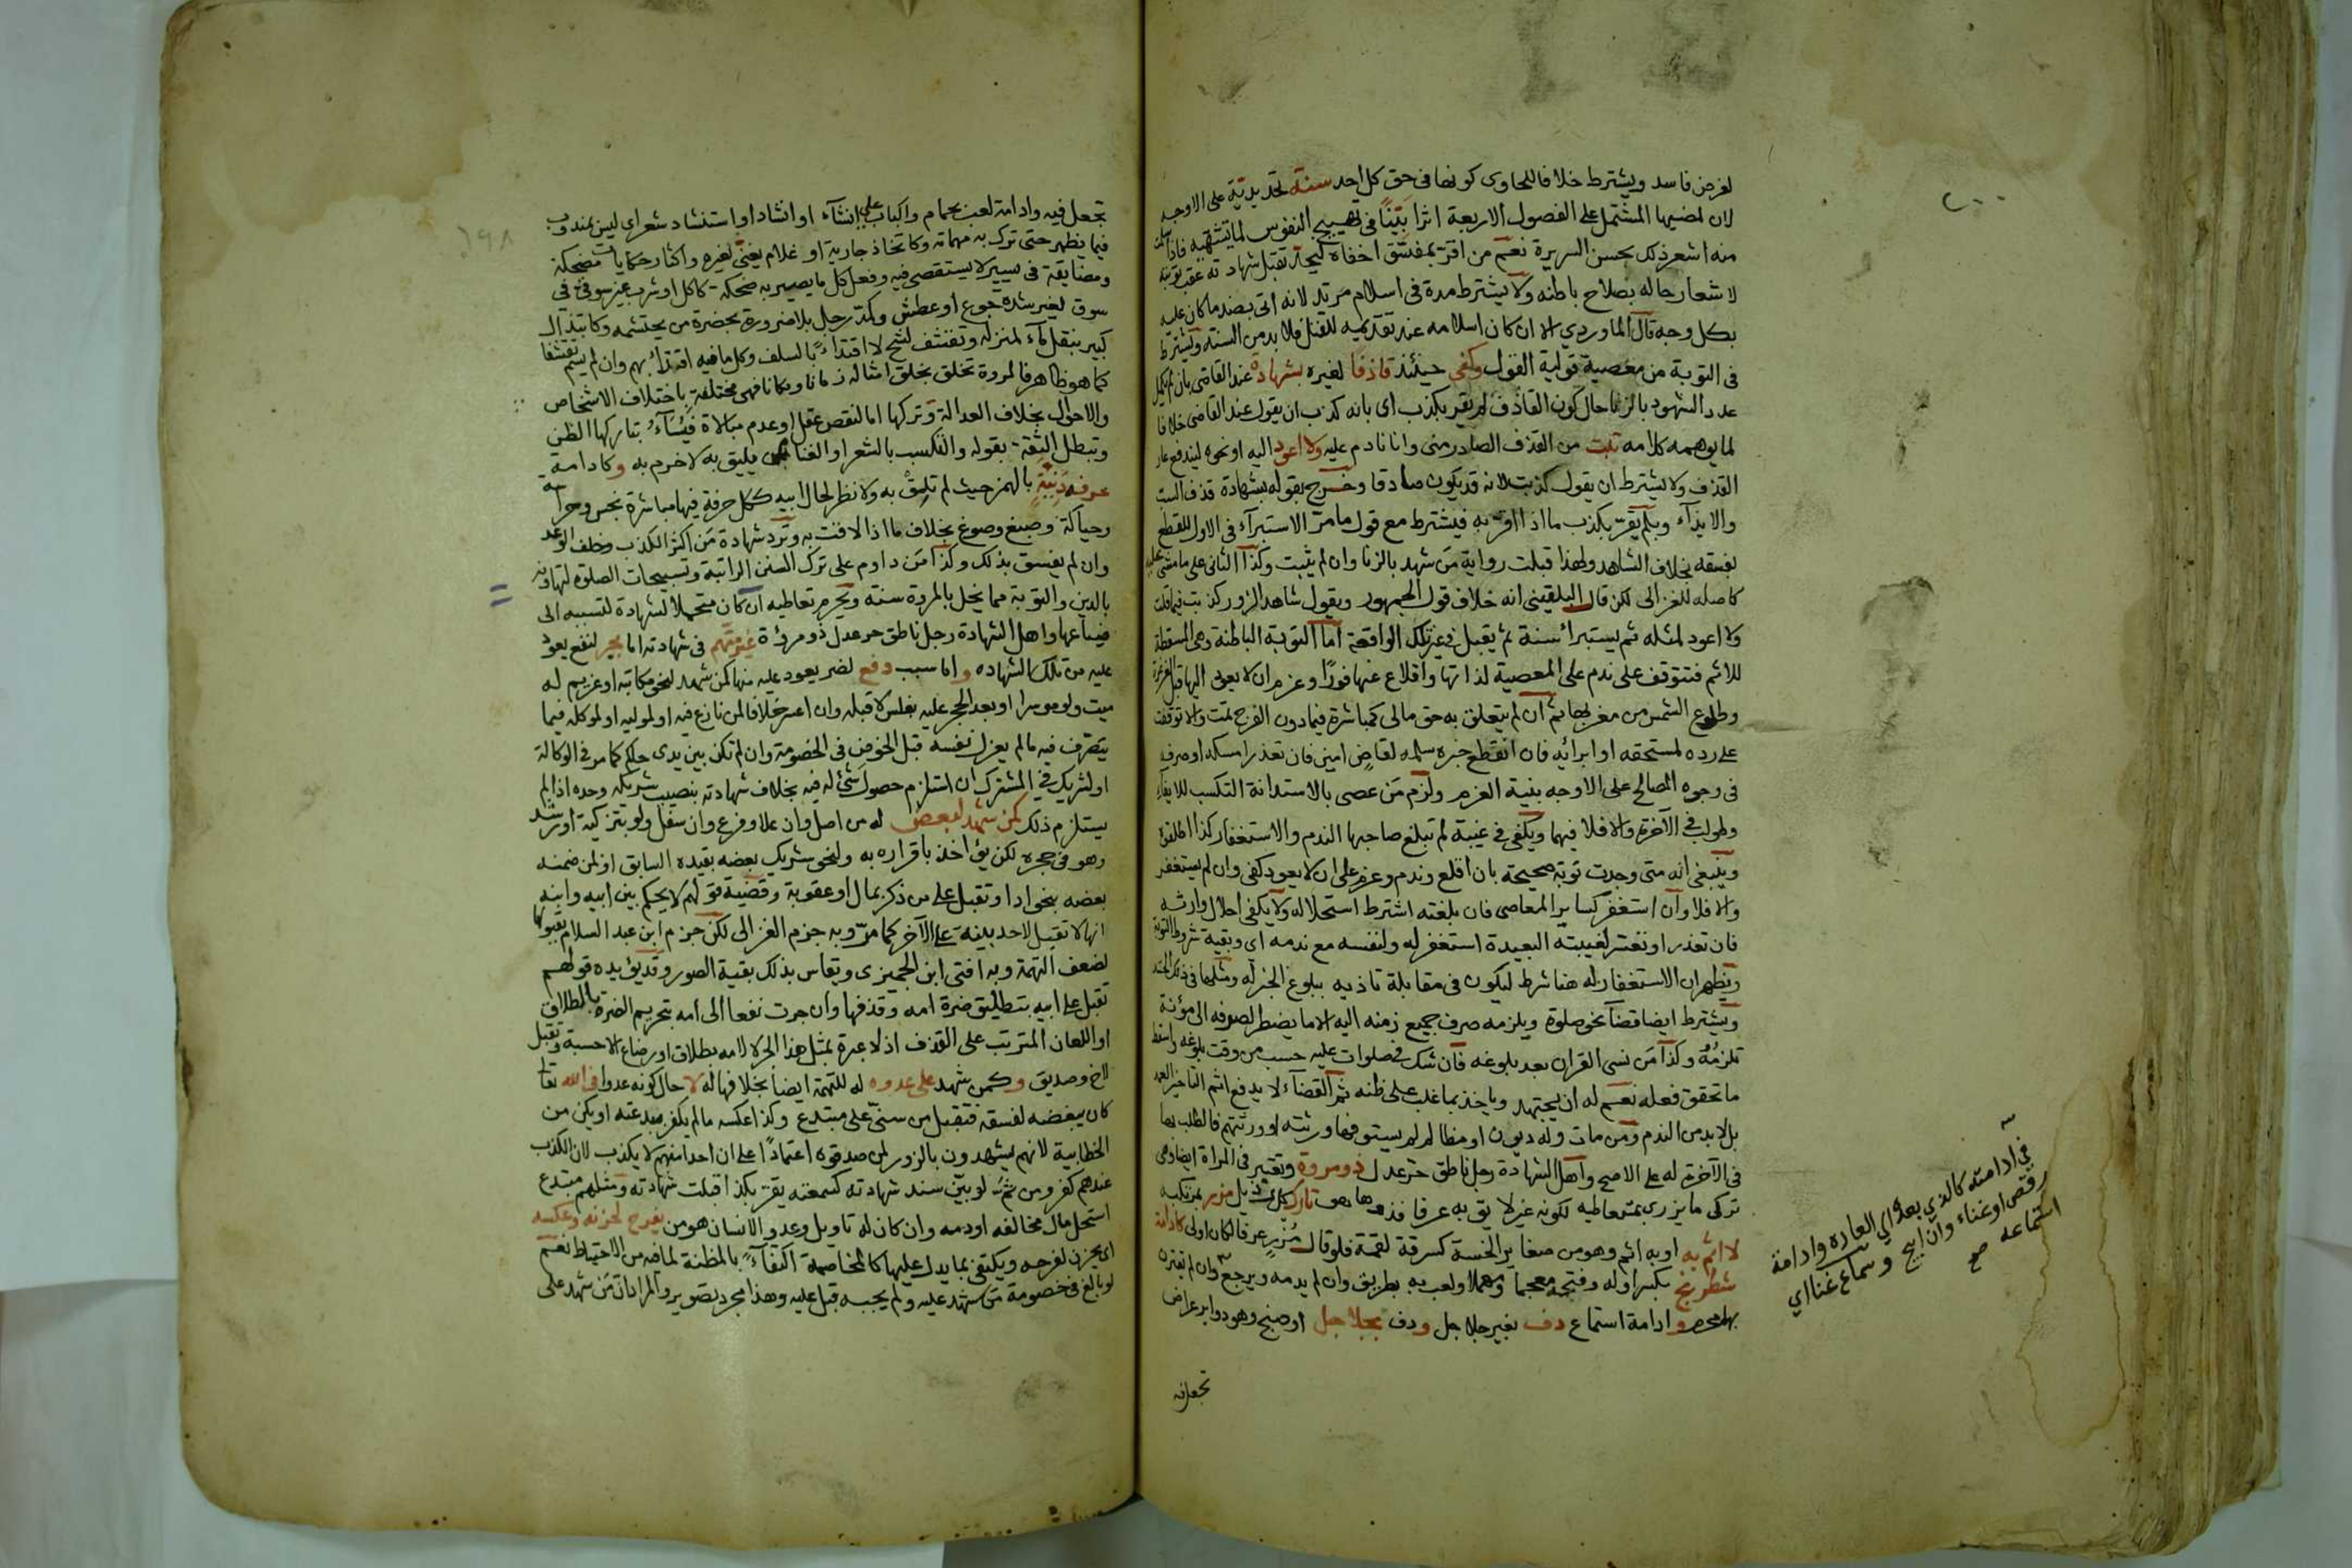 لغرض فاسد ويشترط خلافا للحاوى كونها فى حق كل احد سنة تحديدية على الاوجه
لان لمضيها المشتمل على الفصول الاربعة اثرا بَيّنًا فى تهييج النفوس لما تشتهيه فاذا
منه اشعر ذلك بحسن السريرة نعم من اقرّ بمفسّق اخفاه ليحدّ تقبل شهادته عقب توبته
لاشعار حاله بصلاح باطنه ولا يشترط مدة فى اسلام مرتد لانه اتى بضد ما كان عليه
بكل وجه قال الماوردي الا ان كان اسلامه عند تقديمه للقتل فلا بد من السنة ويشترط
فى التوبة من معصية قولية القول وكفى حينئذ قاذفًا لغيره بشهادة عند القاضى بان لم يكمل
عدد الشهود بالزنا حال كون القاذف لم يقر بكذب اى بانه كذب ان يقول عند القاضى خلافا
لما يوهمه كلامه تبت من القذف الصادر منى وانا نادم عليه ولا اعود اليه او نحوه ليندفع عار
القذف ولا يشترط ان يقول كذبت لانه قد يكون صادقا وخرج بقوله بشهادة قذف السب
والايذآء وبلم يقرّ بكذب ما اذا اقر به فيشترط مع قول ما مرّ الاستبرآء فى الاول للقطع
بفسقه بخلاف الشاهد ولهذا قبلت رواية مَن شهد بالزنا وان لم يثبت وكذا الثانى على ما مشى عليه
كاصله للغزالى لكن قال البلقينى انه خلاف قول الجمهور ويقول شاهد الزور كذبت فيما قلت
ولا اعود لمثله ثم يستبرأ سنة ثم يقبل فى غير تلك الواقعة اما التوبة الباطنة وهى المسقطة
للاثم فتتوقف على ندم على المعصية لذاتها واقلاع عنها فورًا وعزم ان لا يعود اليها قبل الغرغرة
وطلوع الشمس من مغربها ثم ان لم يتعلق به حق مالى كمباشرة فيما دون الفرج تمت والا توقفت
على رده لمستحقه او ابرائه فان انقطع خبره سلمه لقاضٍ امين فان تعذر امسكه او صرفه
فى وجوه المصالح على الاوجه بنية الغرم ولزم مَن عصى بالاستدانة التكسب للايفاء
وطولب فى الآخرة والا فلا فيهما ويكفى فى غيبة لم تبلغ صاحبها الندم والاستغفار كذا اطلقوه
وينبغى انه متى وجدت توبة صحيحة بان اقلع وندم وعزم على ان لا يعود كفى وان لم يستغفر
والا فلا وان استغفر كساير المعاصى فان بلغته اشترط استحلاله ولا يكفى احلال وارثه
فان تعذر او تعسّر لغيبته البعيدة استغفر له ولنفسه مع ندمه اى وبقية شروط التوبة
ويظهر ان الاستغفار له هنا شرط ليكون فى مقابلة تاذيه ببلوغ الخبر له ومثلها فى ذلك الحسد
ويشترط ايضا قضآء نحو صلوة ويلزمه صرف جميع زمنه اليه الا ما يضطر لصرفه الى مؤنة
تلزمُهُ وكذا مَن نسى القرآن بعد بلوغه فان شك فى صلوات عليه حسب من وقت بلوغه واسقط
ما تحقق فعله نعم له ان يجتهد وياخذ بما غلب على ظنه ثم القضآء لا يدفع اثم التاخير العمد
بل لا بد من الندم ومن مات وله ديون او مظالم لم يستوفها ورثته او ورثتهم فالطلب بها
فى الآخرة له على الاصح واهل الشهادة رجل ناطق حرّ عدل ذو مروة وتعتبر فى المراة ايضا وهى
تركى ما يزرى بمتعاطيه لكونه غير لايق به عرفا فذوها هو تارك بل مزر بمرتكبه
لا اثم به او به اثم وهو من صغاير الخسة كسرقة لقمة فلو قال مُزْرٍ عرفا لكان اولى كادامة
شطرنج بكسر اوله وفتحه معجما ومهملا ولعب به بطريق وان لم يدمه ويرجع وان لم يقترن
بها محرم وادامة استماع دف بغير جلاجل ودف بجلاجل او صنج وهو دوابر عراض
تجعل فيه
فى ادامته كالذي بعده اي العاره وادامة
رقص او غناء وان ابيح وسماع غنا اي
استماعه صح
تجعل فيه وادامة لعب بحمام واكباب على انشآء او انشاد او استنشاد شعر اى ليس بمندوب
فيما يظهر حتى ترك به مهماته وكاتخاذ جارية او غلام يغنّى لغيره واكثار حكايات مضحكة
ومضايقة فى يسير لا يستقصى فيه وفعل كل ما يصير به ضحكة كاكل او شرب غير سوقى فى
سوق لغير شدة جوع او عطش وكمدّ رجل بلا ضرورة بحضرة من يحتشمه وكابتذال
كبير بنقل مآء لمنزله وتقشف لشح لا اقتدآءً بالسلف وكل ما فيه اقتدآء بهم وان لم يسم تقشفا
كما هو ظاهر فالمروة تخلق بخلق امثاله زمانا ومكانا فهى مختلفة باختلاف الاشخاص
والاحوال بخلاف العدالة وتركها اما لنقص عقل او عدم مبالاة فيُسآء بتاركها الظن
وتبطل الثقة بقوله والتكسب بالشعر او الغنا ممن يليق به لا خرم به وكادامة
حرفة دَنِيّةٍ بالهمز حيث لم تلِقْ به ولا نظر لحال ابيه ككل حرفة فيها مباشرة نجس وحراسة
وحياكة وصبغ وصوغ بخلاف ما اذا لاقت به وترد شهادة مَن اكثر الكذب وخلف الوعد
وان لم يفسق بذلك وكذا مَن داوم على ترك السنن الراتبة وتسبيحات الصلوة لتهاونه
بالدين والتوبة مما يخل بالمروة سنة ويحرم تعاطيه ان كان متحملا لشهادة لتسببه الى
ضياعها واهل الشهادة رجل ناطق حر عدل ذو مروءة غير متهم فى شهادته اما بجر لنفع يعود
عليه من تلك الشهادة واما سبب دفع لضر يعود عليه منها كمن شهد لنحو مكاتبه او غريم له
ميت ولو موسرا او بعد الحجر عليه بفلس لا قبله وان اعسر خلافا لمن نازع فيه او لموليه او لموكله فيما
يتصرف فيه ما لم يعزل نفسه قبل الخوض فى الخصومة وان لم تكن بين يدى حاكم كما مر فى الوكالة
او لشريك فى المشترك ان استلزم حصول شئ له فيه بخلاف شهادته بنصيب شريكه وحده اذا لم
يستلزم ذلك كمن شهد لبعض له من اصل وان علا وفرع وان سفل ولو بتزكية او رشد
وهو فى حجره لكن يؤاخذ باقراره به ولنحو شريك بعضه بقيده السابق او لمن ضمنه
بعضه بنحو ادا وتقبل على من ذكر بمال او عقوبة وقضية قولهم لا يحكم بين ابيه وابنه
انها لا تقبل لاحد بينة على الآخر كما مرّ وبه جزم الغزالى لكن جزم ابن عبد السلام بقبولها
لضعف التهمة وبه افتى ابن الجميزى ويقاس بذلك بقية الصور وقد يؤيده قولهم
تقبل على ابيه بتطليق ضرة امه وقذفها وان جرت نفعا الى امه بتحريم الضرة بالطلاق
او اللعان المترتب على القذف اذ لا عبرة بمثل هذا الجر لا لامه بطلاق او رضاع الا حسبة وتقبل
لاخ وصديق وكمن شهد على عدوه له للتهمة ايضا بخلافها له لا حال كونه عدوا فى الله تعا
كان يبغضه لفسقه فتقبل من سنّى على مبتدع وكذا عكسه ما لم يكفر ببدعته او يكن من
الخطابية لانهم يشهدون بالزور لمن صدقوه اعتمادًا على ان احدا منهم لا يكذب لان الكذب
عندهم كفر ومن ثم لو بيّن سند شهادته كسمعته يقرّ بكذا قبلت شهادته ومثلهم مبتدع
استحل مال مخالفه او دمه وان كان له تاويل وعدو الانسان هو من يفرح لحزنه وعكسه
اى يحزن لفرحه ويكتفى بما يدل عليها كالمخاصمة اكتفآءً بالمظنة لما فيه من الاحتياط نعم
لو بالغ فى خصومة مَن شهد عليه ولم يجبه قبل عليه وهذا مجرد تصوير والمراد ان مَن شهد على